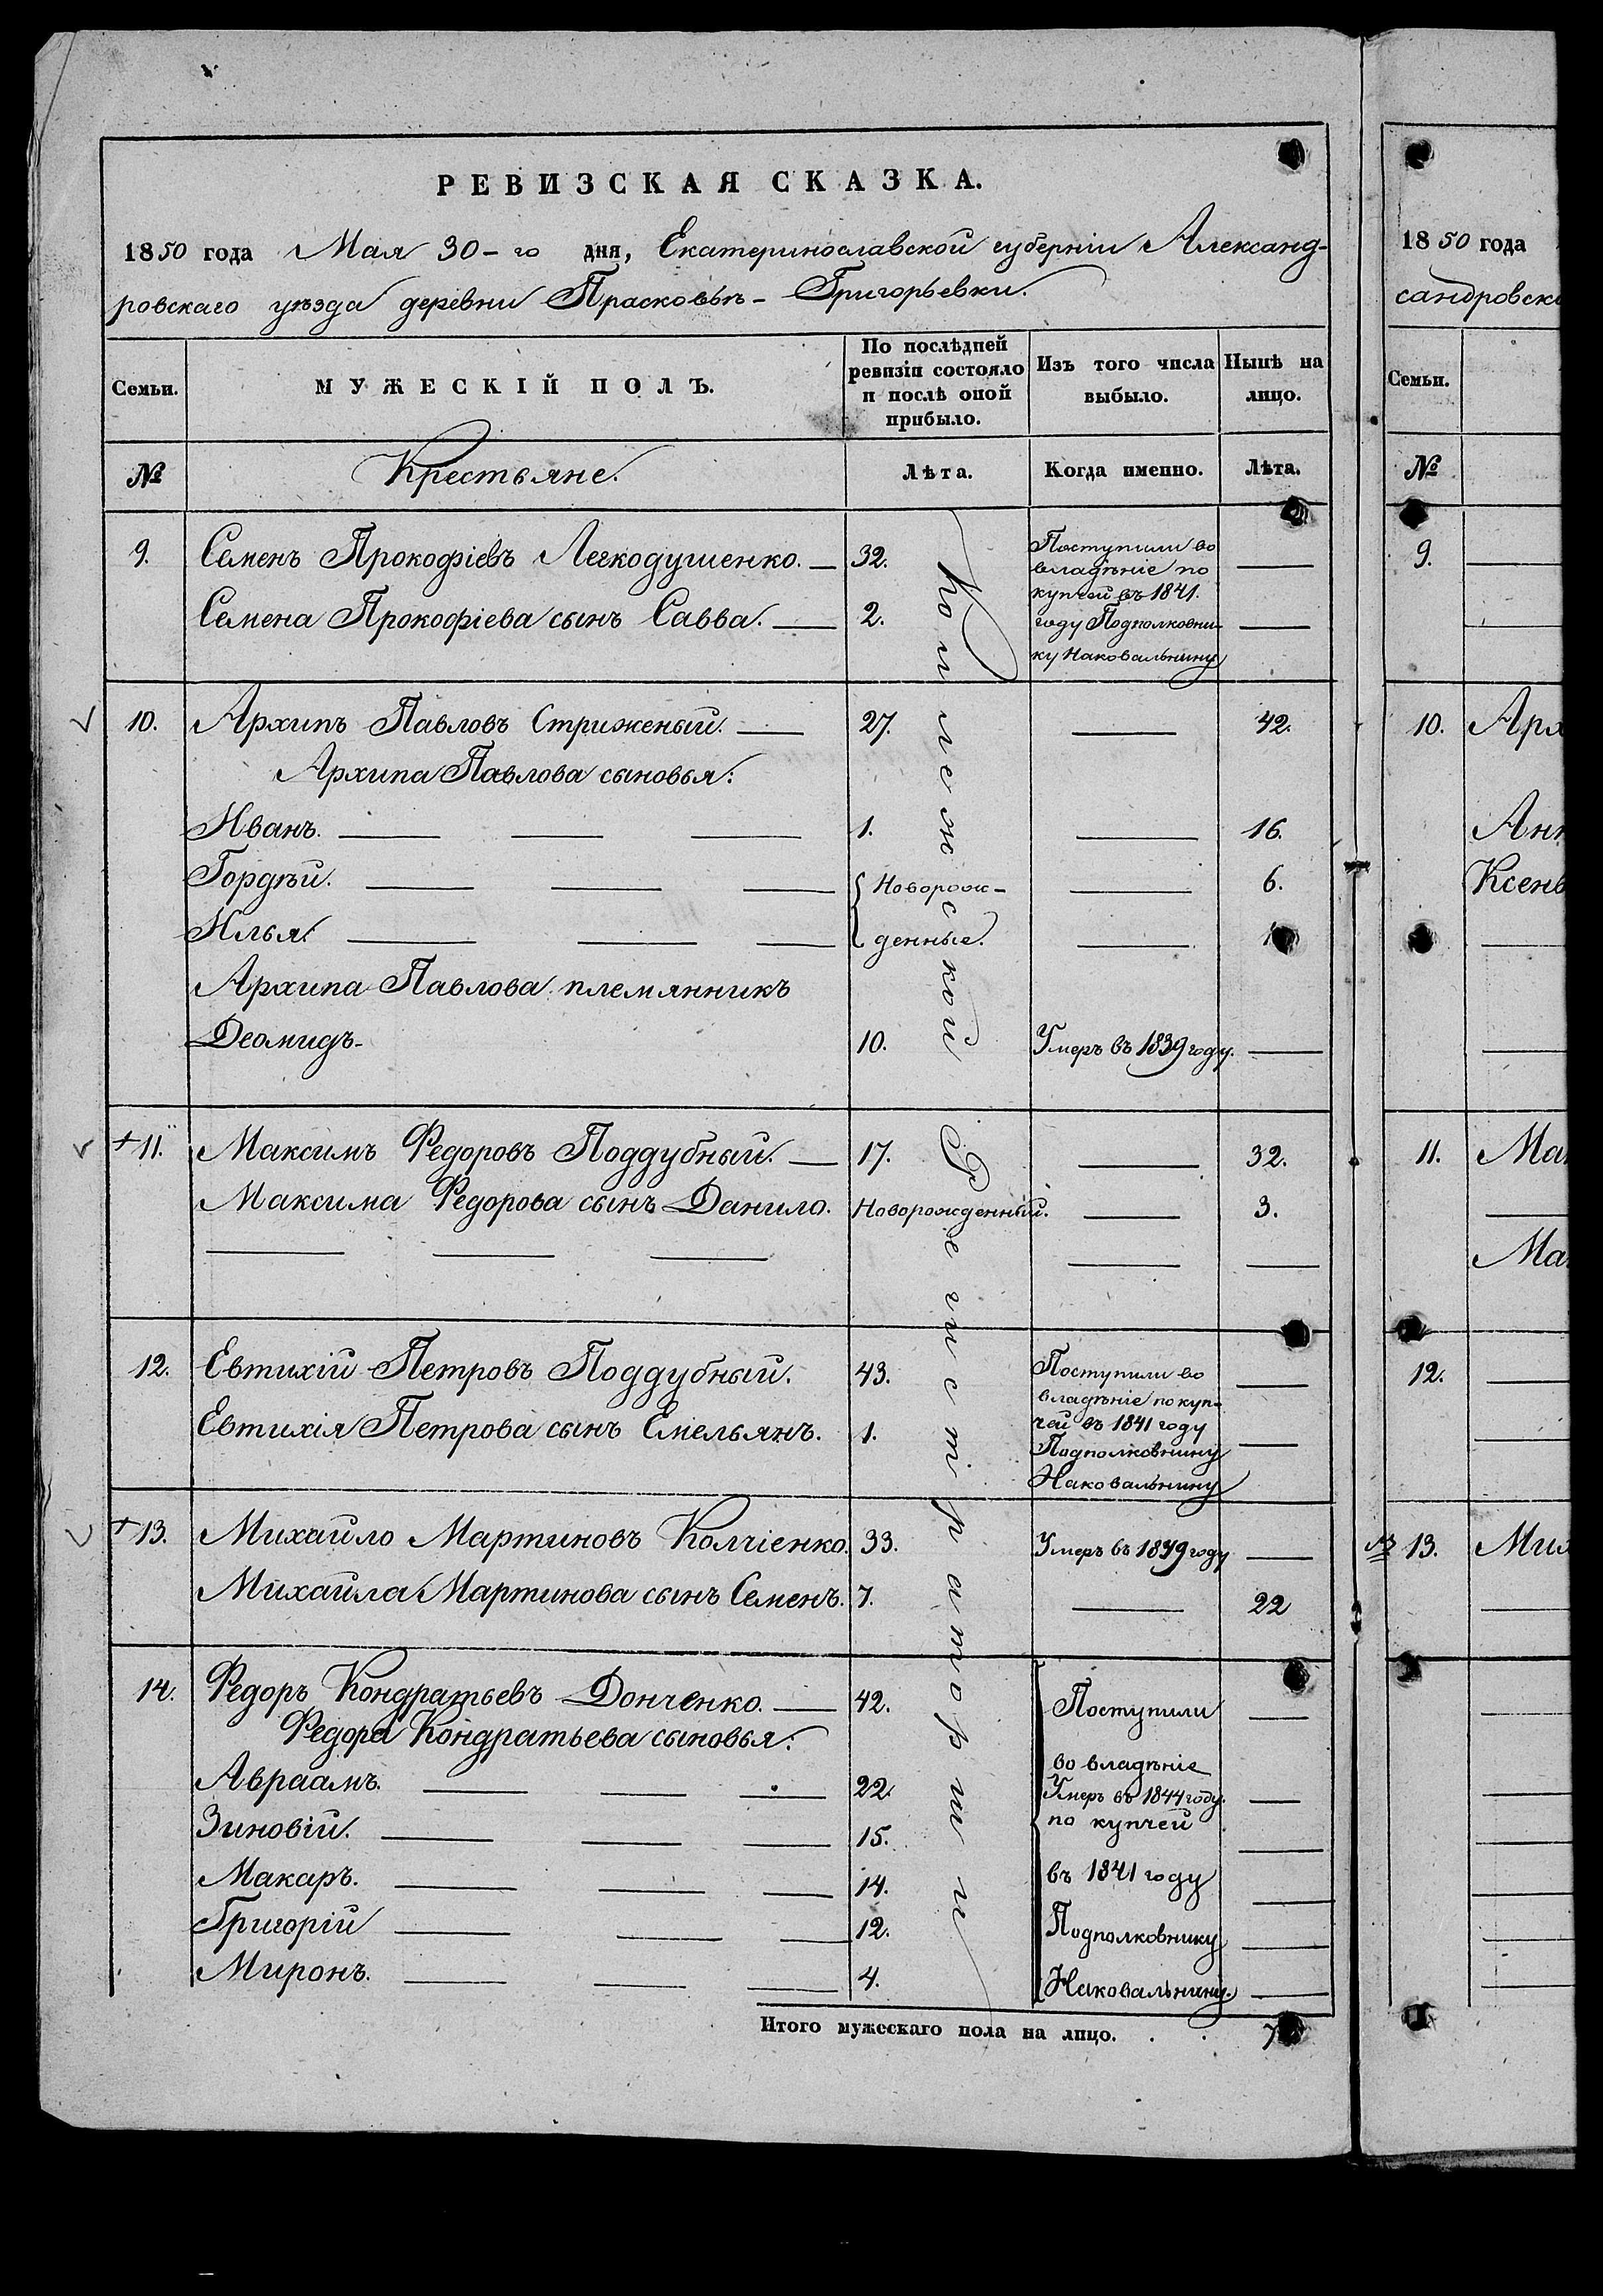 РЕВИЗСКАЯ СКАЗКА.
1850 года Мая 30-го дня, Екатеринославской губерніи Александ-
ровскаго уѣзда деревни Прасковѣ-Григорьевки.
Семьи. МУЖЕСКІЙ ПОЛЪ. По послѣдней ревизіи состояло и послѣ оной прибыло. Изъ того числа выбыло. Нынѣ на лицо.
№ Крестьяне. Лѣта. Когда именно. Лѣта.
9. Семенъ Прокофіевъ Легкодушенко. — 32. Поступили во —
владѣніе по
купчей въ 1841.
Семена Прокофіева сынъ Савва. — 2. году Подполковни- —
ку Наковальнину
10. Архипъ Павловъ Стриженый. — 27. — 42.
Архипа Павлова сыновья:
Иванъ. — — — 1. — 16.
Гордѣй. — — — Новорож- — 6.
Илья. — — — денные. —
Архипа Павлова племянникъ
Деомидъ- 10. Умеръ въ 1839 году. —
+11. Максимъ Федоровъ Поддубный. — 17. — 32.
Максима Федорова сынъ Данило. Новорожденный. — 3.
— — — — —
12. Евтихій Петровъ Поддубный. 43. Поступили во —
владѣніе по куп-
Евтихія Петрова сынъ Емельянъ. 1. чей въ 1841 году —
Подполковнику
Наковальнину
+13. Михайло Мартиновъ Колчіенко. 33. Умеръ въ 1839 году —
Михайла Мартинова сынъ Семенъ. 7. — 22
14. Федоръ Кондратьевъ Донченко. — 42. Поступили —
Федора Кондратьева сыновья:
во владѣніе
Авраамъ. — — — 22. Умеръ въ 1844 году. —
Зиновій. — — — 15. по купчей —
Макаръ. — — — 14. въ 1841 году —
Григорій — — — 12. Подполковнику —
Миронъ. — — — 4. Наковальнину. —
Итого мужескаго пола на лицо. . .
Коллежской Регистраторши
1850 года
сандровск
Семьи.
№
9.
10. Арх
Анн
Ксень
11. Ма
Ма
12.
13. Мих